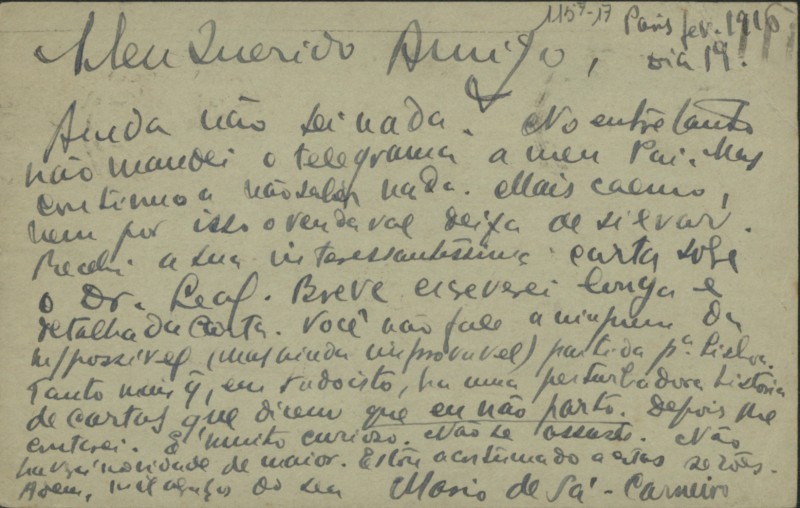 115⁷-17
Paris fev. 1916
Dia 19.
Meu Querido Amigo,
Ainda não sei nada. No entretanto
não mandei o telegrama a meu Pai. Mas
continuo a não saber nada. Mais calmo,
nem por isso o vendaval deixa de silvar.
Recebi a sua interessantissima carta sobre
o Dr. Leal. Breve escreverei longa e
detalhada carta. Você não fale a ninguem da
impossivel (mas ainda improvavel) partida pª Lisboa.
Tanto mais q̃, em tudo isto, ha uma perturbadora historia
de cartas que dizem que eu não parto. Depois lhe
contarei. É muito curioso. Não se assuste. Não
haverá novidade de maior. Estou acostumado a estas sezões.
Adeus, mil abraços do seu Mario de Sá-Carneiro